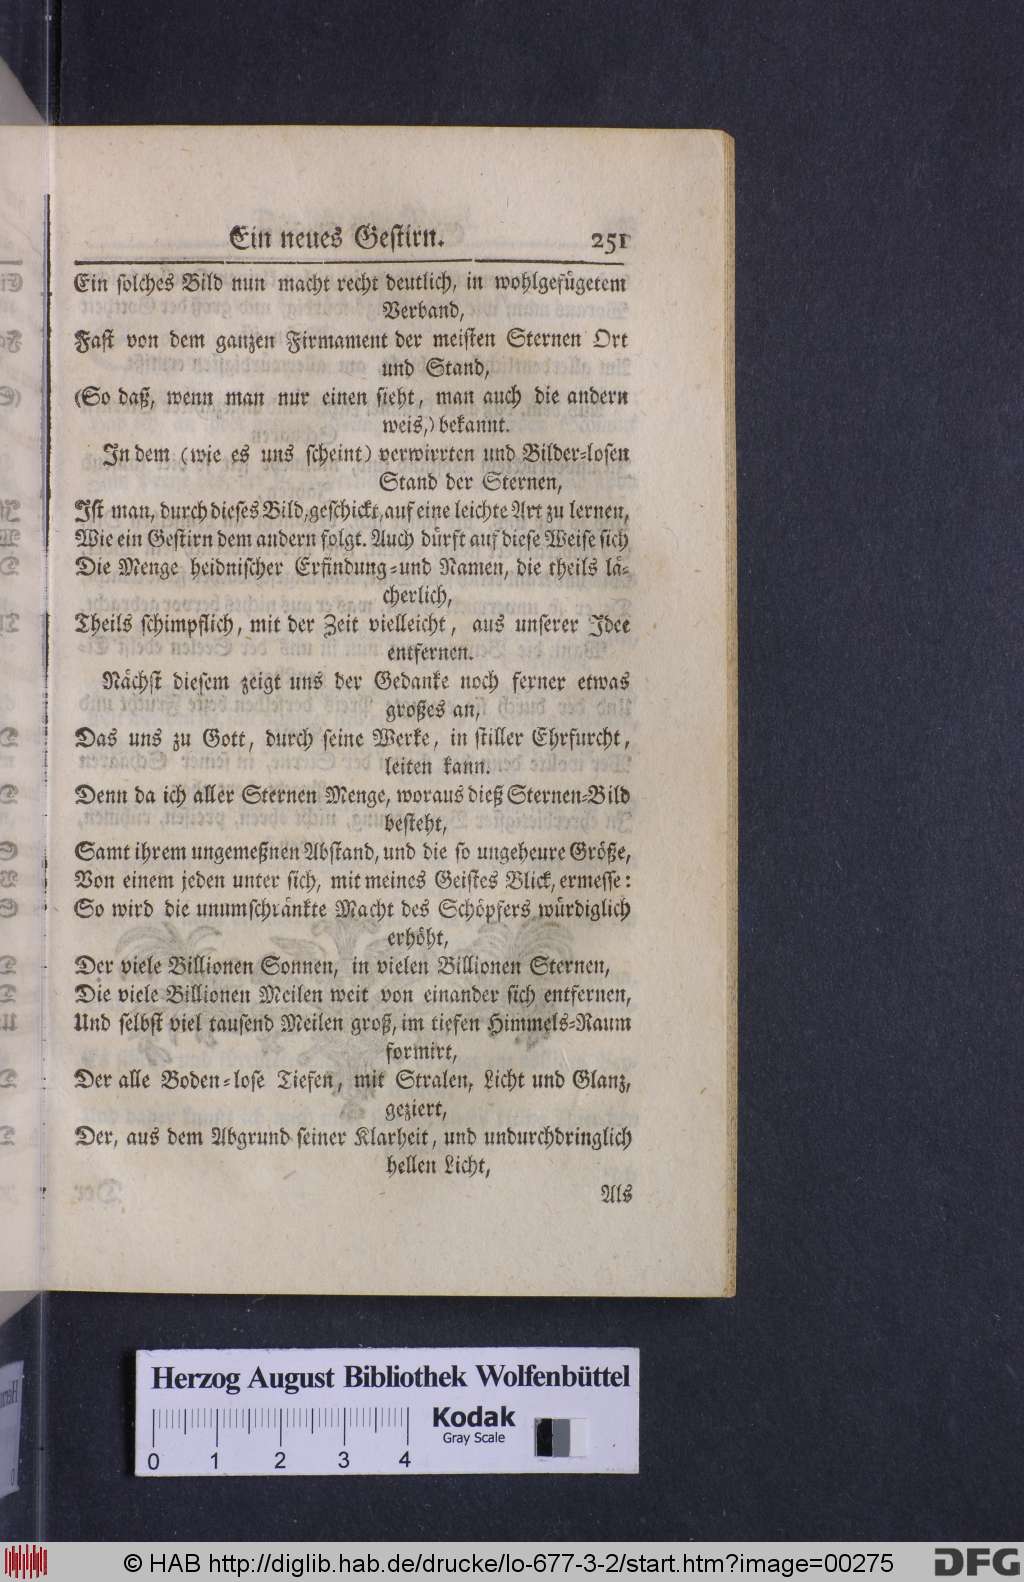 Ein neues Gestirn. 251
Ein solches Bild nun macht recht deutlich, in wohlgefügetem
Verband,
Fast von dem ganzen Firmament der meisten Sternen Ort
und Stand,
(So daß, wenn man nur einen sieht, man auch die andern
weis,) bekannt.
In dem (wie es uns scheint) verwirrten und Bilder-losen
Stand der Sternen,
Ist man, durch dieses Bild, geschickt, auf eine leichte Art zu lernen,
Wie ein Gestirn dem andern folgt. Auch dürft auf diese Weise sich
Die Menge heidnischer Erfindung-und Namen, die theils lä-
cherlich,
Theils schimpflich, mit der Zeit vielleicht, aus unserer Idee
entfernen.
Nächst diesem zeigt uns der Gedanke noch ferner etwas
großes an,
Das uns zu Gott, durch seine Werke, in stiller Ehrfurcht,
leiten kann.
Denn da ich aller Sternen Menge, woraus dieß Sternen-Bild
besteht,
Samt ihrem ungemeßnen Abstand, und die so ungeheure Größe,
Von einem jeden unter sich, mit meines Geistes Blick, ermesse:
So wird die unumschränkte Macht des Schöpfers würdiglich
erhöht,
Der viele Billionen Sonnen, in vielen Billionen Sternen,
Die viele Billionen Meilen weit von einander sich entfernen,
Und selbst viel tausend Meilen groß, im tiefen Himmels-Raum
formirt,
Der alle Boden-lose Tiefen, mit Stralen, Licht und Glanz,
geziert,
Der, aus dem Abgrund seiner Klarheit, und undurchdringlich
hellen Licht,
Als
Herzog August Bibliothek Wolfenbüttel
Kodak
Gray Scale
0 1 2 3 4
© HAB http://diglib.hab.de/drucke/lo-677-3-2/start.htm?image=00275
DFG